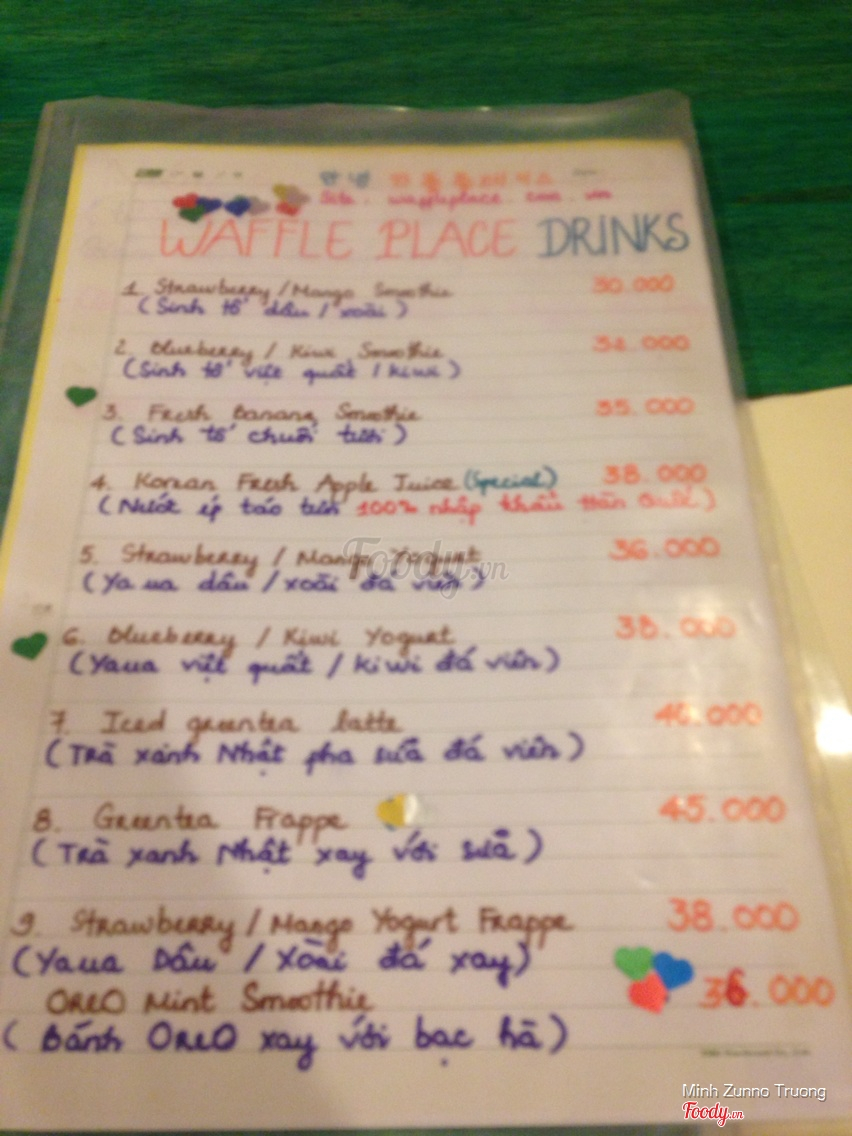 안녕
Site: waffleplace.com.vn
WAFFLE PLACE DRINKS
1. Strawberry / Mango Smoothie 30.000
(Sinh tố dâu / xoài)
2. Blueberry / Kiwi Smoothie 32.000
(Sinh tố việt quất / kiwi)
3. Fresh Banana Smoothie 35.000
(Sinh tố chuối tươi)
4. Korean Fresh Apple Juice (Special) 38.000
(Nước ép táo tươi 100% nhập khẩu Hàn Quốc)
5. Strawberry / Mango Yogurt 36.000
(Yaua dâu / xoài đá viên)
6. Blueberry / Kiwi Yogurt 38.000
(Yaua việt quất / kiwi đá viên)
7. Iced greentea latte 40.000
(Trà xanh Nhật pha sữa đá viên)
8. Greentea Frappe 45.000
(Trà xanh Nhật xay với sữa)
9. Strawberry / Mango Yogurt Frappe 38.000
(Yaua Dâu / Xoài đá xay)
OREO Mint Smoothie 36.000
(Bánh OREO xay với bạc hà)
Foody.vn
Minh Zunno Truong
Foody.vn